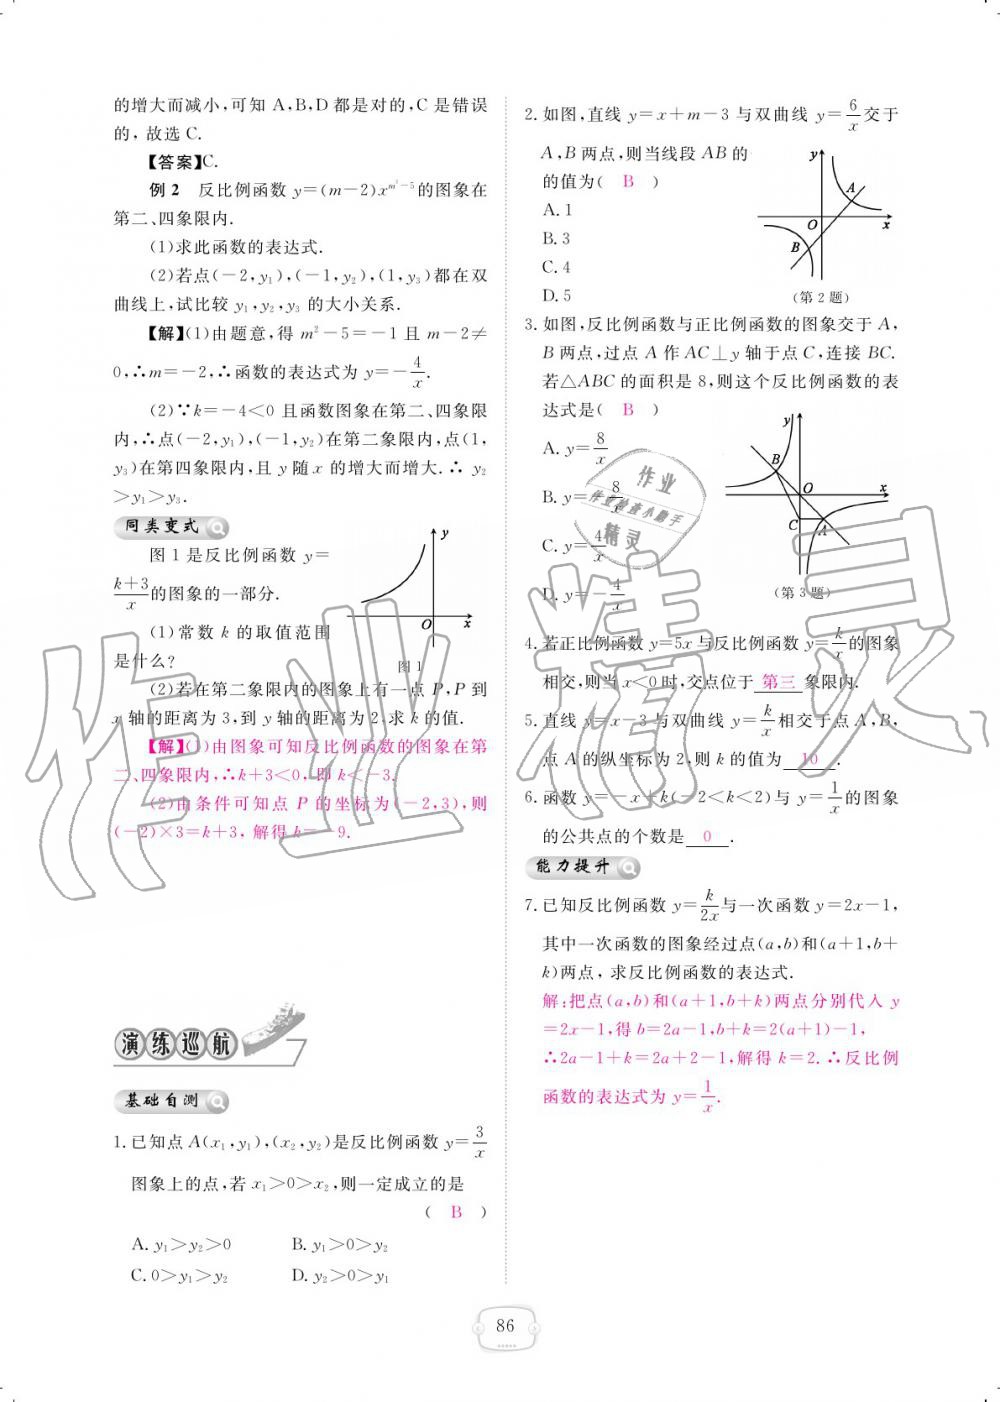 的增大而减小,可知 A,B,D 都是对的,C 是错误
的,故选 C.
【答案】C.
例 2 反比例函数 y=(m-2)x^{m²-5}的图象在
第二、四象限内.
(1)求此函数的表达式.
(2)若点(-2,y₁),(-1,y₂),(1,y₃)都在双
曲线上,试比较 y₁,y₂,y₃ 的大小关系.
【解】(1)由题意,得 m²-5=-1 且 m-2≠
0,∴m=-2,∴函数的表达式为 y=-4/x.
(2)∵k=-4<0 且函数图象在第二、四象限
内,∴点(-2,y₁),(-1,y₂)在第二象限内,点(1,
y₃)在第四象限内,且 y 随 x 的增大而增大.∴ y₂
>y₁>y₃.
同类变式
图 1 是反比例函数 y=
(k+3)/x的图象的一部分.
(1)常数 k 的取值范围
是什么?
y
O
x
图 1
(2)若在第二象限内的图象上有一点 P,P 到
x 轴的距离为 3,到 y 轴的距离为 2,求 k 的值.
【解】(1)由图象可知反比例函数的图象在第
二、四象限内,∴k+3<0,即 k<-3.
(2)由条件可知点 P 的坐标为(-2,3),则
(-2)×3=k+3,解得 k=-9.
演练巡航
基础自测
1.已知点 A(x₁,y₁),(x₂,y₂)是反比例函数 y=3/x
图象上的点,若 x₁>0>x₂,则一定成立的是
( B )
A. y₁>y₂>0 B. y₁>0>y₂
C. 0>y₁>y₂ D. y₂>0>y₁
2.如图,直线 y=x+m-3 与双曲线 y=6/x交于
A,B 两点,则当线段 AB 的
的值为( B )
A. 1
B. 3
C. 4
D. 5
y
A
O
x
B
(第 2 题)
3.如图,反比例函数与正比例函数的图象交于 A,
B 两点,过点 A 作 AC⊥y 轴于点 C,连接 BC.
若△ABC 的面积是 8,则这个反比例函数的表
达式是( B )
A. y=8/x
B. y=-8/x
C. y=4/x
D. y=-4/x
y
B
O
x
C
A
(第 3 题)
4.若正比例函数 y=5x 与反比例函数 y=k/x的图象
相交,则当 x<0 时,交点位于 第三 象限内.
5.直线 y=x-3 与双曲线 y=k/x相交于点 A,B,
点 A 的纵坐标为 2,则 k 的值为 10 .
6.函数 y=-x+k(-2<k<2)与 y=1/x的图象
的公共点的个数是 0 .
能力提升
7.已知反比例函数 y=k/2x与一次函数 y=2x-1,
其中一次函数的图象经过点(a,b)和(a+1,b+
k)两点,求反比例函数的表达式.
解:把点(a,b)和(a+1,b+k)两点分别代入 y
=2x-1,得 b=2a-1,b+k=2(a+1)-1,
∴2a-1+k=2a+2-1,解得 k=2.∴反比例
函数的表达式为 y=1/x.
86
作业
作业检查小助手
精灵
作业精灵